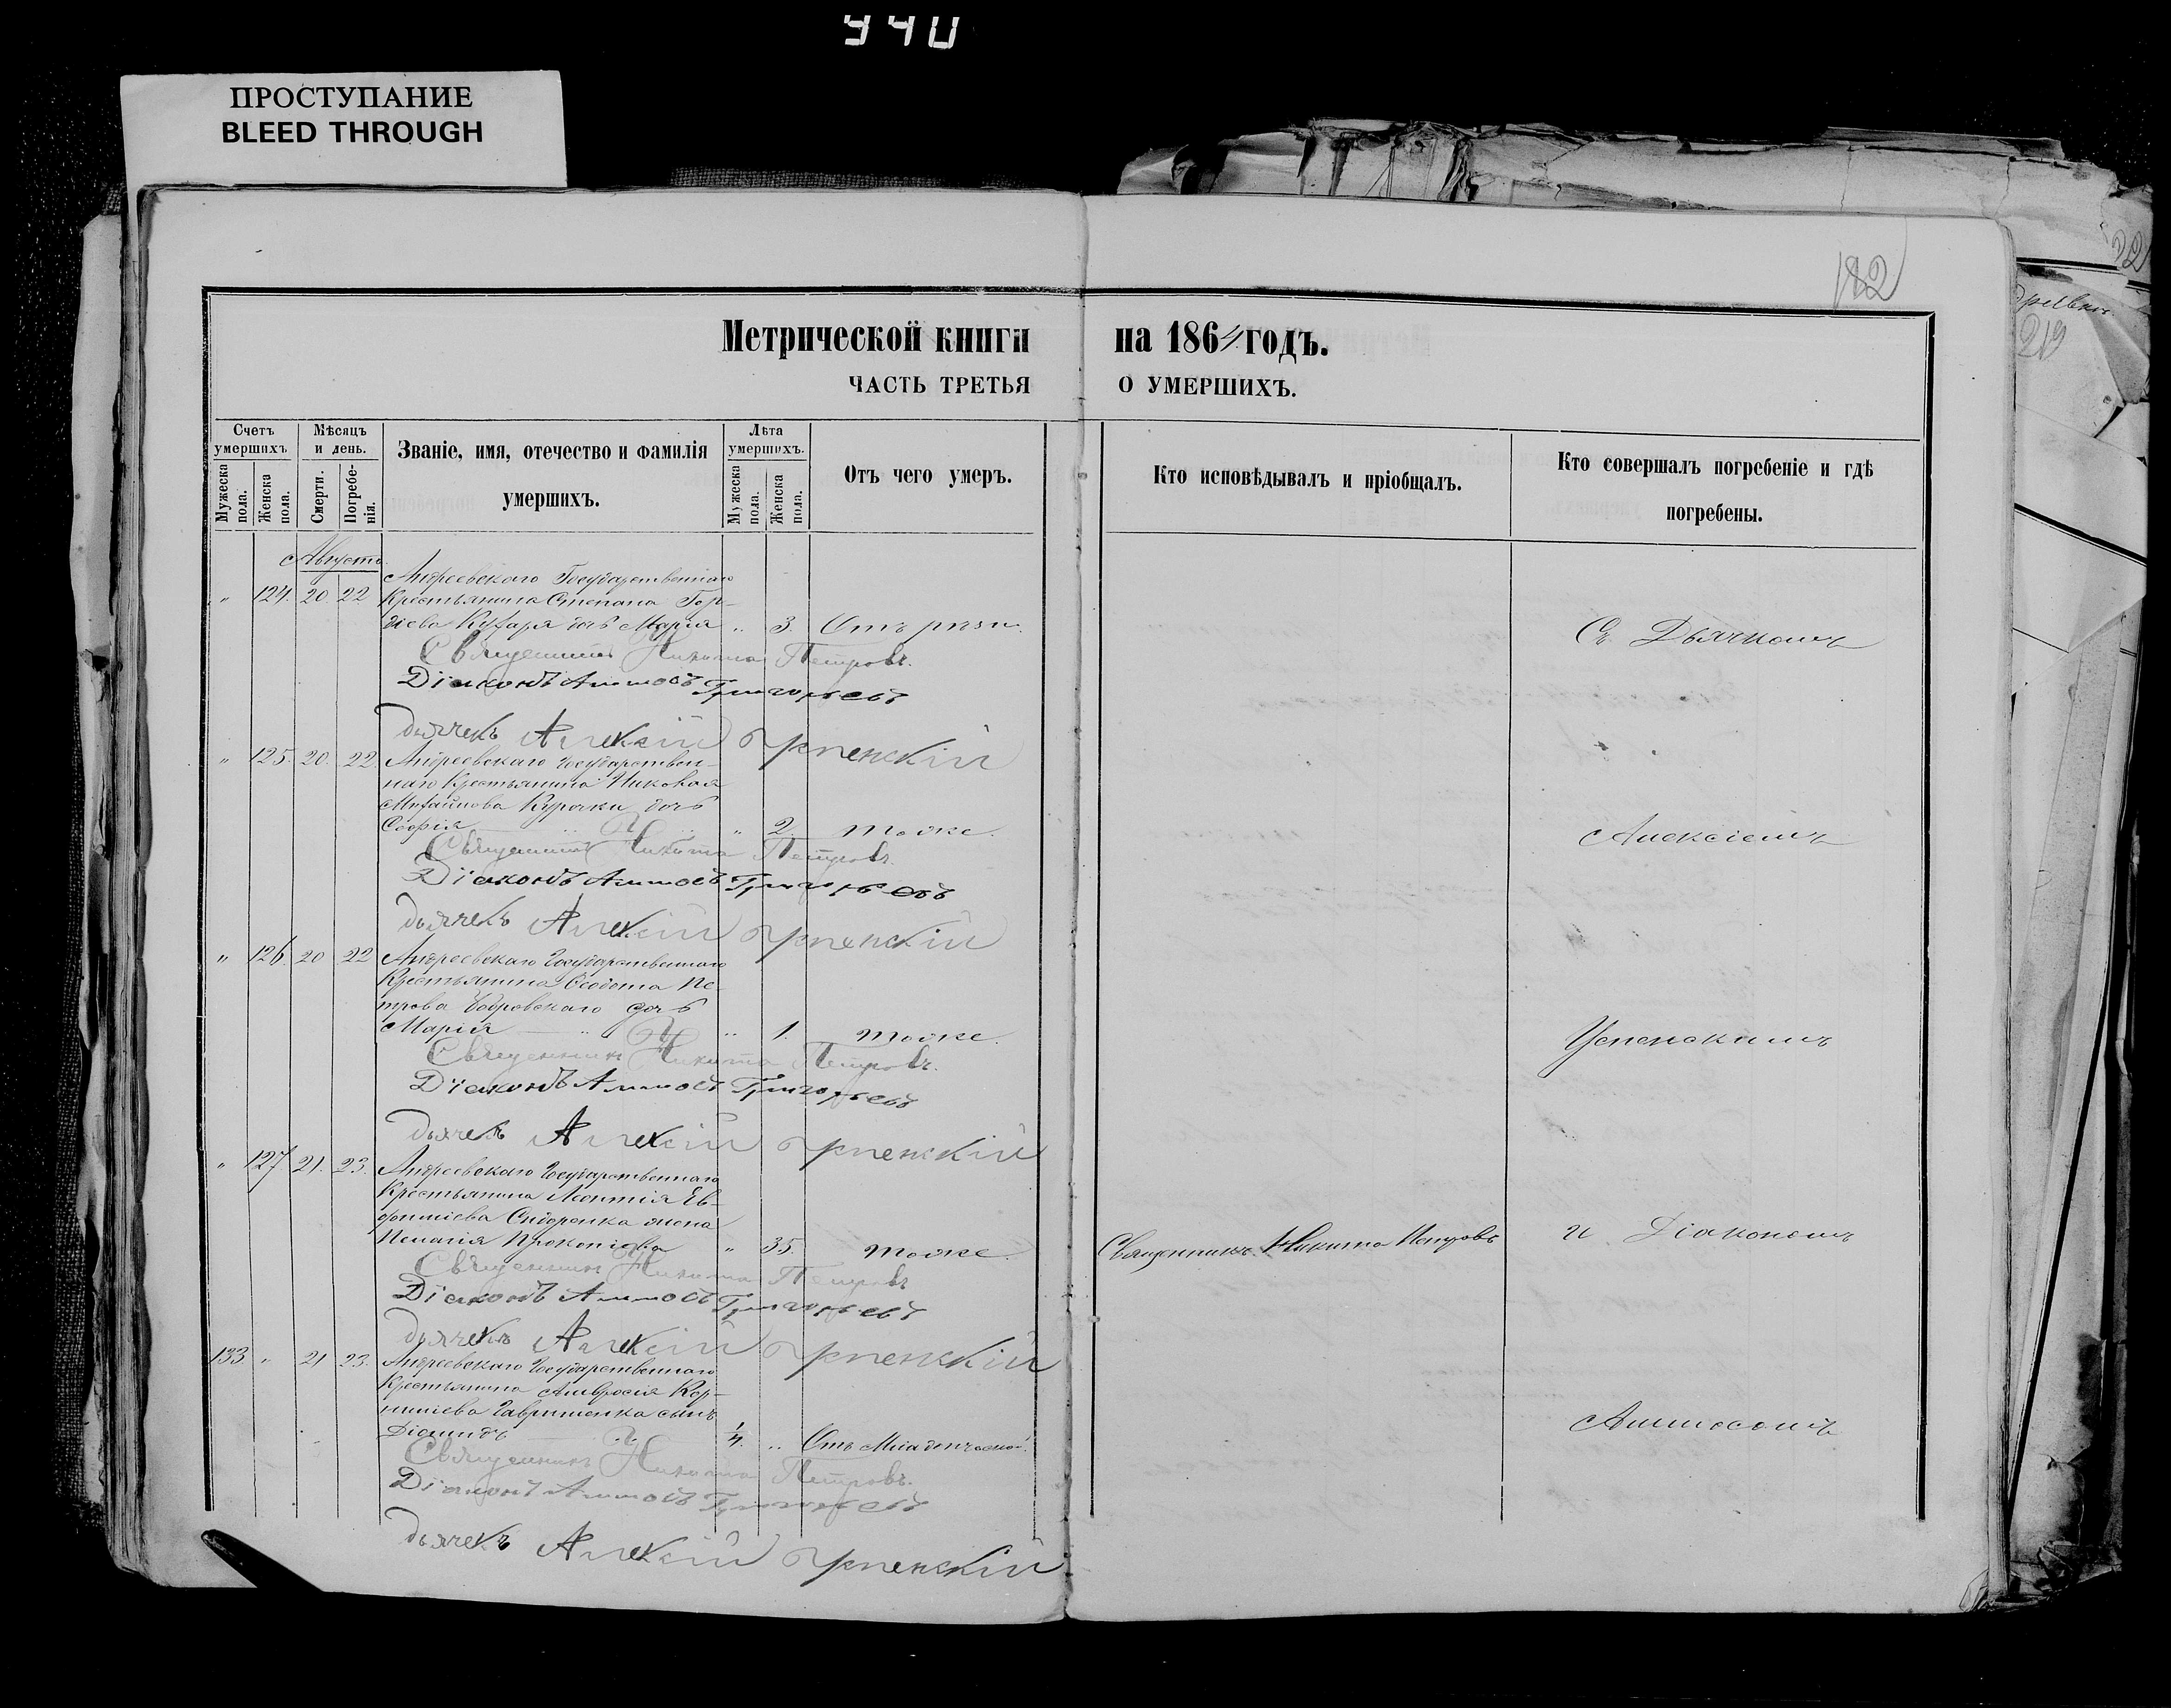 940
ПРОСТУПАНИЕ
BLEED THROUGH
182
219
Метрической книги на 1864 годъ.
ЧАСТЬ ТРЕТЬЯ О УМЕРШИХЪ.
Счетъ умершихъ.
Мужеска пола.
Женска пола.
Мѣсяцъ и день.
Смерти.
Погребенія.
Званіе, имя, отечество и фамилія умершихъ.
Лѣта умершихъ.
Мужеска пола.
Женска пола.
Отъ чего умеръ.
Кто исповѣдывалъ и пріобщалъ.
Кто совершалъ погребеніе и гдѣ погребены.
Августъ
Андреевскаго Государственнаго
" 124. 20. 22 Крестьянина Степана
дочь Марія " 3. Отъ
Съ Дьячкомъ
Священникъ Никита Петровъ.
Діаконъ Аммосъ Григорьевъ
дьячекъ Алексій Успенскій
" 125. 20. 22. Андреевскаго Государствен-
наго Крестьянина Николая
Михайлова Курочки дочь
Софія " 2 тоже.
Алексіемъ
Священникъ Никита Петровъ.
Діаконъ Аммосъ Григорьевъ
дьячекъ Алексій Успенскій
" 126. 20 22 Андреевскаго Государственнаго
Крестьянина Феодота Пе-
трова Бобровскаго дочь
Марія " 1. тоже.
Успенскимъ
Священникъ Никита Петровъ.
Діаконъ Аммосъ Григорьевъ
дьячекъ Алексій Успенскій
" 127 21. 23. Андреевскаго Государственнаго
Крестьянина Леонтія Ев-
фиміева Сидоренка жена
Пелагія Прокопіева " 35. тоже.
Священникъ Никита Петровъ
и Діакономъ
Священникъ Никита Петровъ
Діаконъ Аммосъ Григорьевъ
дьячекъ Алексій Успенскій
133 " 21 23. Андреевскаго Государственнаго
Крестьянина Амвросія Кор-
ниліева Гавриленка сынъ
Діомидъ 1/4. " Отъ Младенческой.
Аммосомъ
Священникъ Никита Петровъ.
Діаконъ Аммосъ Григорьевъ
дьячекъ Алексій Успенскій